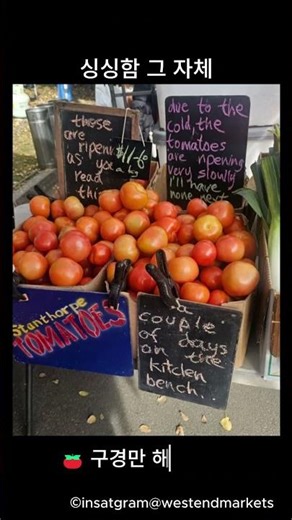 싱싱함 그 자체
those
are
ripening
as you
read
this
$11
a kg
due to the
cold, the
tomatoes
are ripening
very slowly
I'll have
none next
Stanthorpe
TOMATOES
a
couple
of days
on the
kitchen
bench.
🍅 구경만 해
©insatgram@westendmarkets